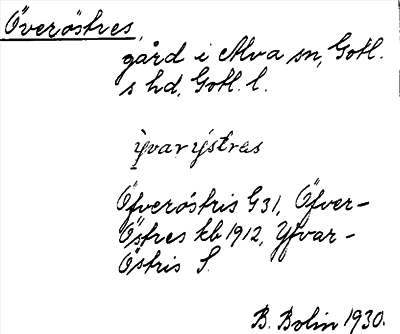 Överöstres,
gård i Alva sn, Gotl.
s hd, Gotl. l.
ẏvarẏstres
Öfveröstris G31, Öfver-
Östres kb 1912, Yfvar-
Östris S.
B. Bolin 1930.